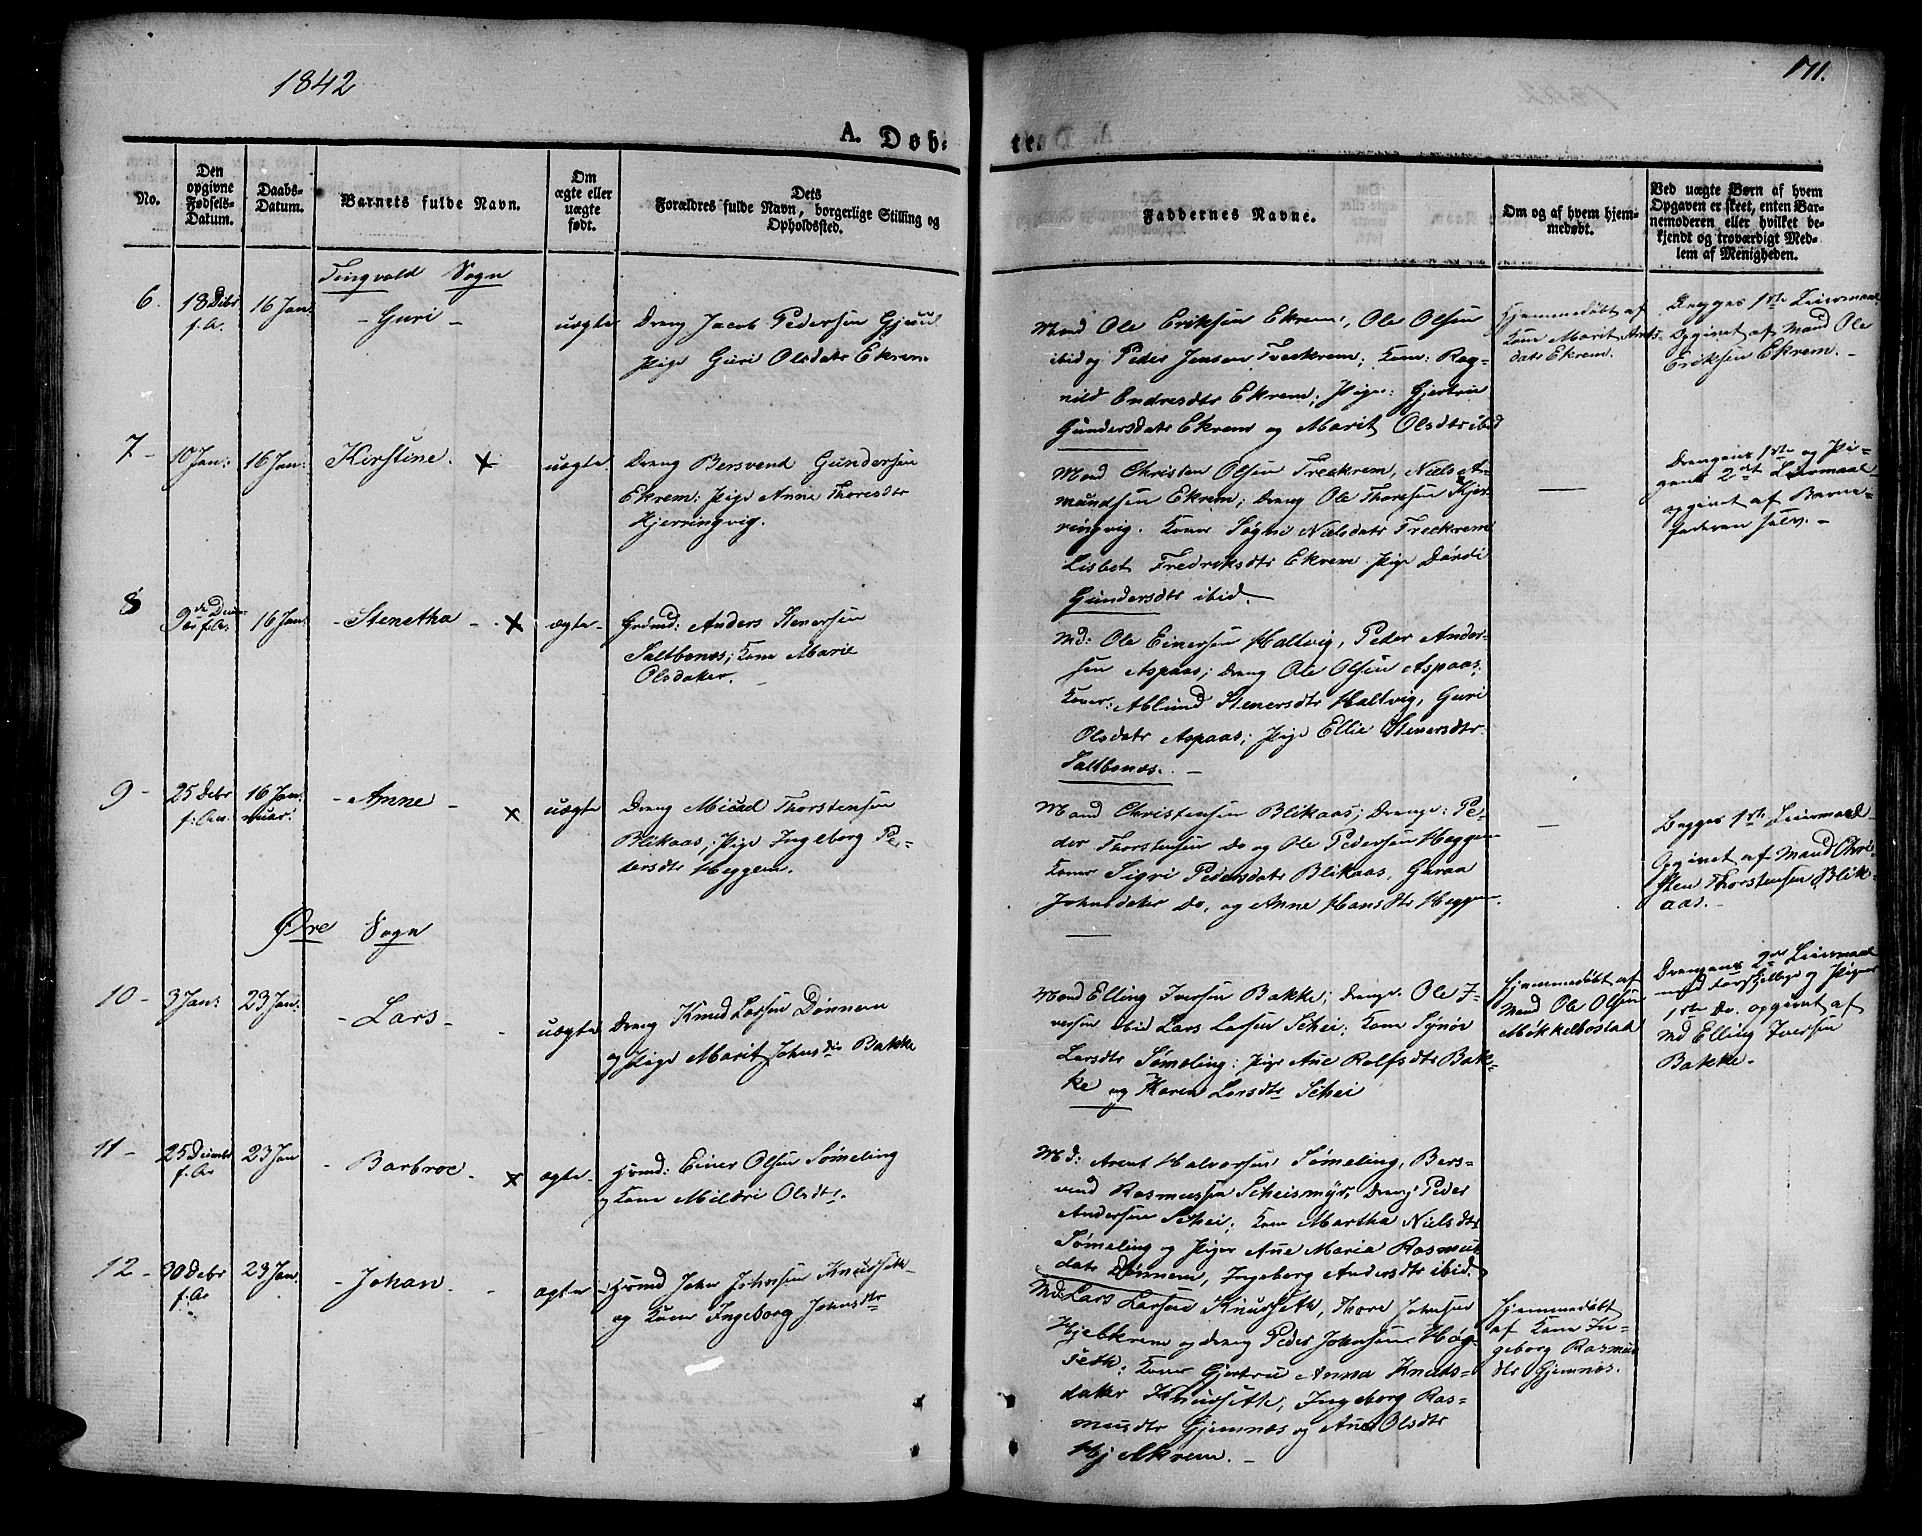 1842
171.
A. Døb-
te.
No.
Den opgivne Fødsels-Datum.
Daabs-Datum.
Barnets fulde Navn.
Om ægte eller uægte født.
Dets Forældres fulde Navn, borgerlige Stilling og Opholdssted.
Faddernes Navne.
Om og af hvem hjem-
medøbt.
Ved uægte Børn af hvem
Opgaven er skeet, enten Bar-
nemoderen eller hvilket be-
kjendt og troværdigt Med-
lem af Menigheden.
Tingvold Sogn
6.
18 Debr
f. A.
16 Jan:
- Guri -
uægte
Dreng Jacob Pedersen
Pige Guri Olsdatr Ekrem.
Mænd Ole Eriksen Ekrem, Ole Olsen
ibid og Peder Jensen Freckrem; Kone: Rag-
nild Endresdtr Ekrem; Piger: Gjertrue
Gundersdatr Ekrem og Marit Olsdtr ibid
Hjemmedøbt af
Kone Marit Arnts-
datr Ekrem.
Begges 1ste Leiermaal
Opgivet af Mand Ole
Eriksen Ekrem. -
7 -
10 Jan:
16 Jan:
Kirstine. x
uægte
Dreng Bersvend Gundersen
Ekrem; Pige Anne Thoresdtr
Hjerringvig.
Mænd Christen Olsen Freekrem, Niels A-
mundsen Ekrem; Dreng Ole Thoresen Hjer-
ringvig. Koner Søgni Nielsdatr Freekrem
Lisbet Fredriksdtr Ekrem. Pige Dordi
Gundersdtr ibid.
—
Drengens 1ste og Pi-
gens 2det Leiermaal
opgivet af Barne-
faderen selv. -
8
9de Decem-
br f.A.
16 Jan:
- Stenetha - x
ægte -
Grmd: Anders Stenersen
Saltbonæs; Kone Marie
Olsdater. -
Md: Ole Einersen Haltvig, Peder Ander-
sen Aspaas; Dreng Ole Olsen Aspaas.
Koner: Ablund Stenersdtr Haltvig, Guri
Olsdatr Aspaas; Pige Ellie Stenersdtr
Saltbonæs. -
9 -
25 Debr
f: An.
16 Jan:
nuar.
- Anne - x
uægte
Dreng Micael Thorstensen
Blikaas; Pige Ingeborg Pe-
dersdtr Heggem.
Mand Christensen Blikaas; Drenge: Pe-
der Thorstensen Do og Ole Pedersen Heggem
Koner Sigri Pedersdatr Blikaas, Guraa
Johnsdater Do, og Anne Hansdtr Heggem.
—
Begges 1ste Leiermaal
Opgivet af Mand Chri-
sten Thorstensen Blik-
aas. -
Øre Sogn
10 -
3 Jan:
23 Jan:
- Lars -
uægte
Dreng Knud Larsen Dønnem
og Pige Marit Johnsdtr Bakke
Mænd Elling Iversen Bakke; Drenge: Ole I-
versen ibid Lars Larsen Schei; Kone Synøv
Larsdtr Sømeling; Pige Ane Rolfsdtr Bak-
ke og Karen Larsdtr Schei
Hjemmedøbt af
Mand Ole Olsen
Møkkelbostad
Drengens 2det Leiermaal
med forskjellige og Pigens
1ste Do. opgivet af
Md Elling Iversen
Bakke. -
11 -
25 Decembr
f. Ar
23 Jan
- Barbroe - x
ægte -
Hmd: Einer Olsen Sømeling
og Kone Mildri Olsdtr.
Md: Arent Halvorsen Sømeling, Bers-
vend Rasmussen Scheismyr; Dreng Peder
Andersen Schei; Kone Martha Nielsdtr
Sømeling og Piger Ane Maria Rasmus
datr Dønnem, Ingeborg Andersdtr ibid.
12 -
30 Debr
f. Ar
23 Jan.
- Johan. -
ægte -
Hmd John Johnsen Knudseth
og Kone Ingeborg Johnsdtr
Md: Lars Larsen Knudseth, Thore Johnsen
Hjelkrem og Dreng Peder Johnsen Høg-
seth; Koner Gjertru Anna Knuts-
dater Knudseth, Ingeborg Ras-
musdtr Gjemnæs og Ane Olsdtr
Hjelkrem. -
Hjemmedøbt
af Kone In-
geborg Rasmus
dtr Gjemnæs.